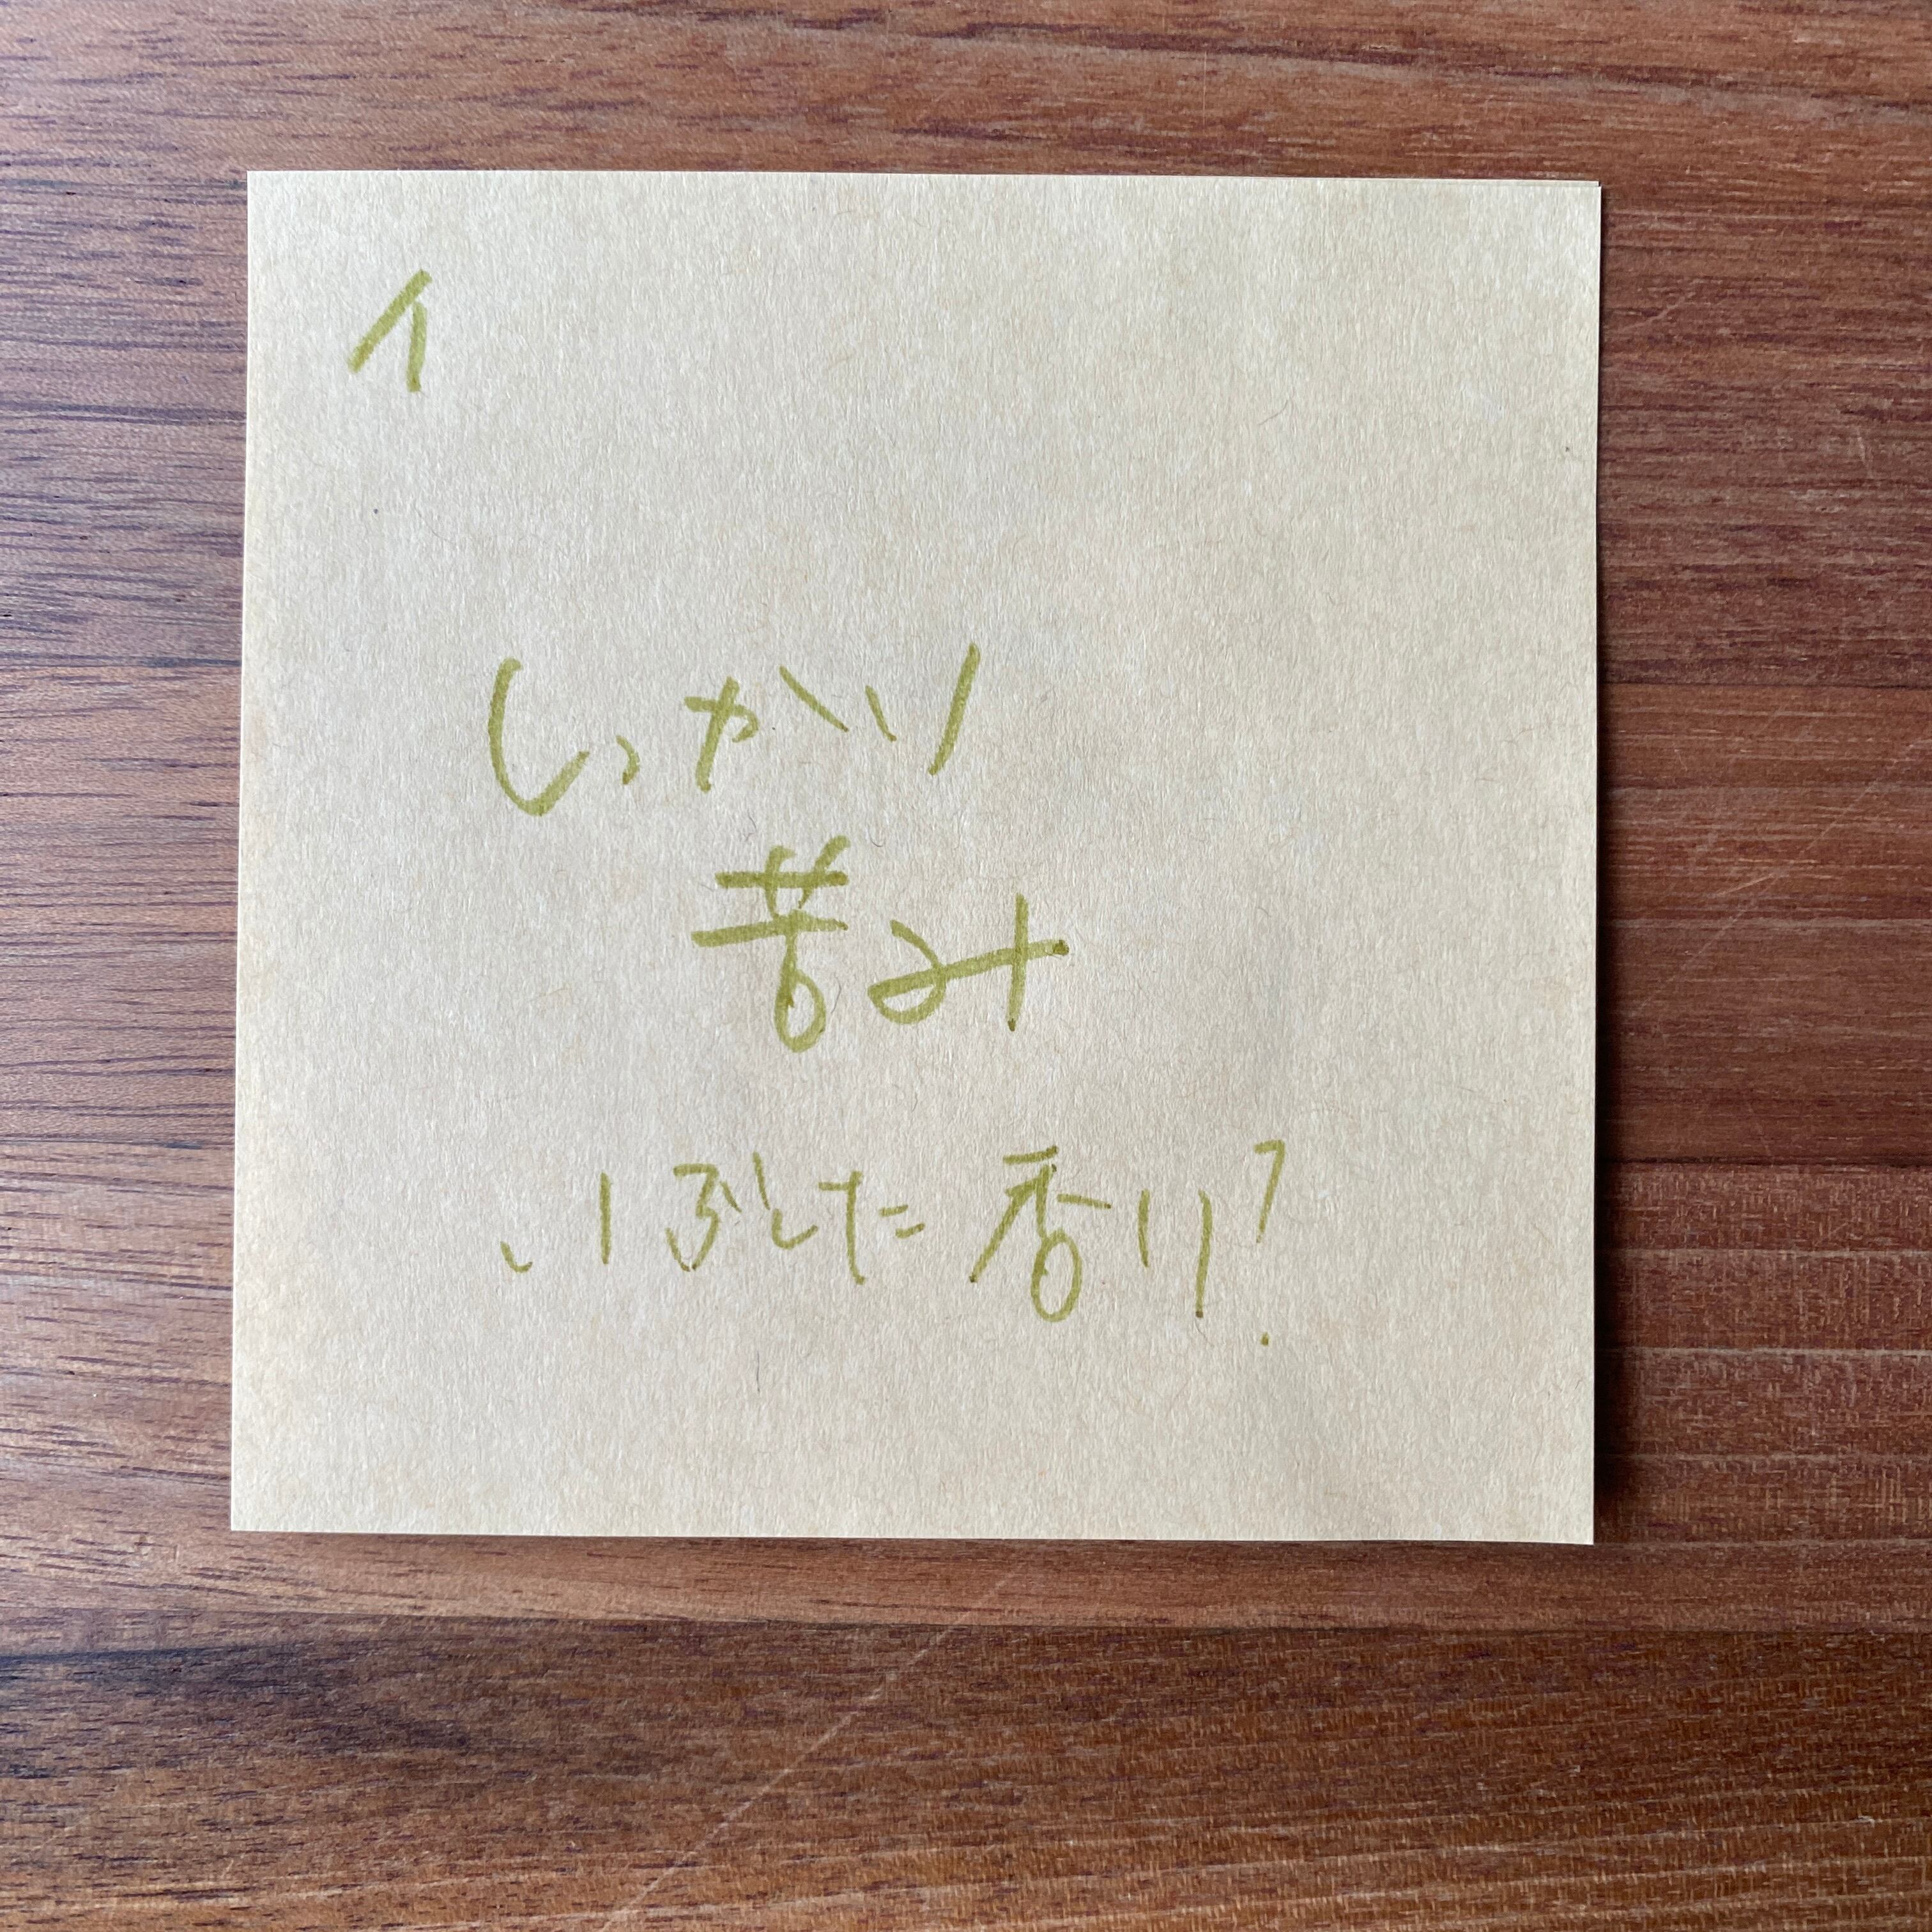 イ
しっかり
苦み
いぶした香り?